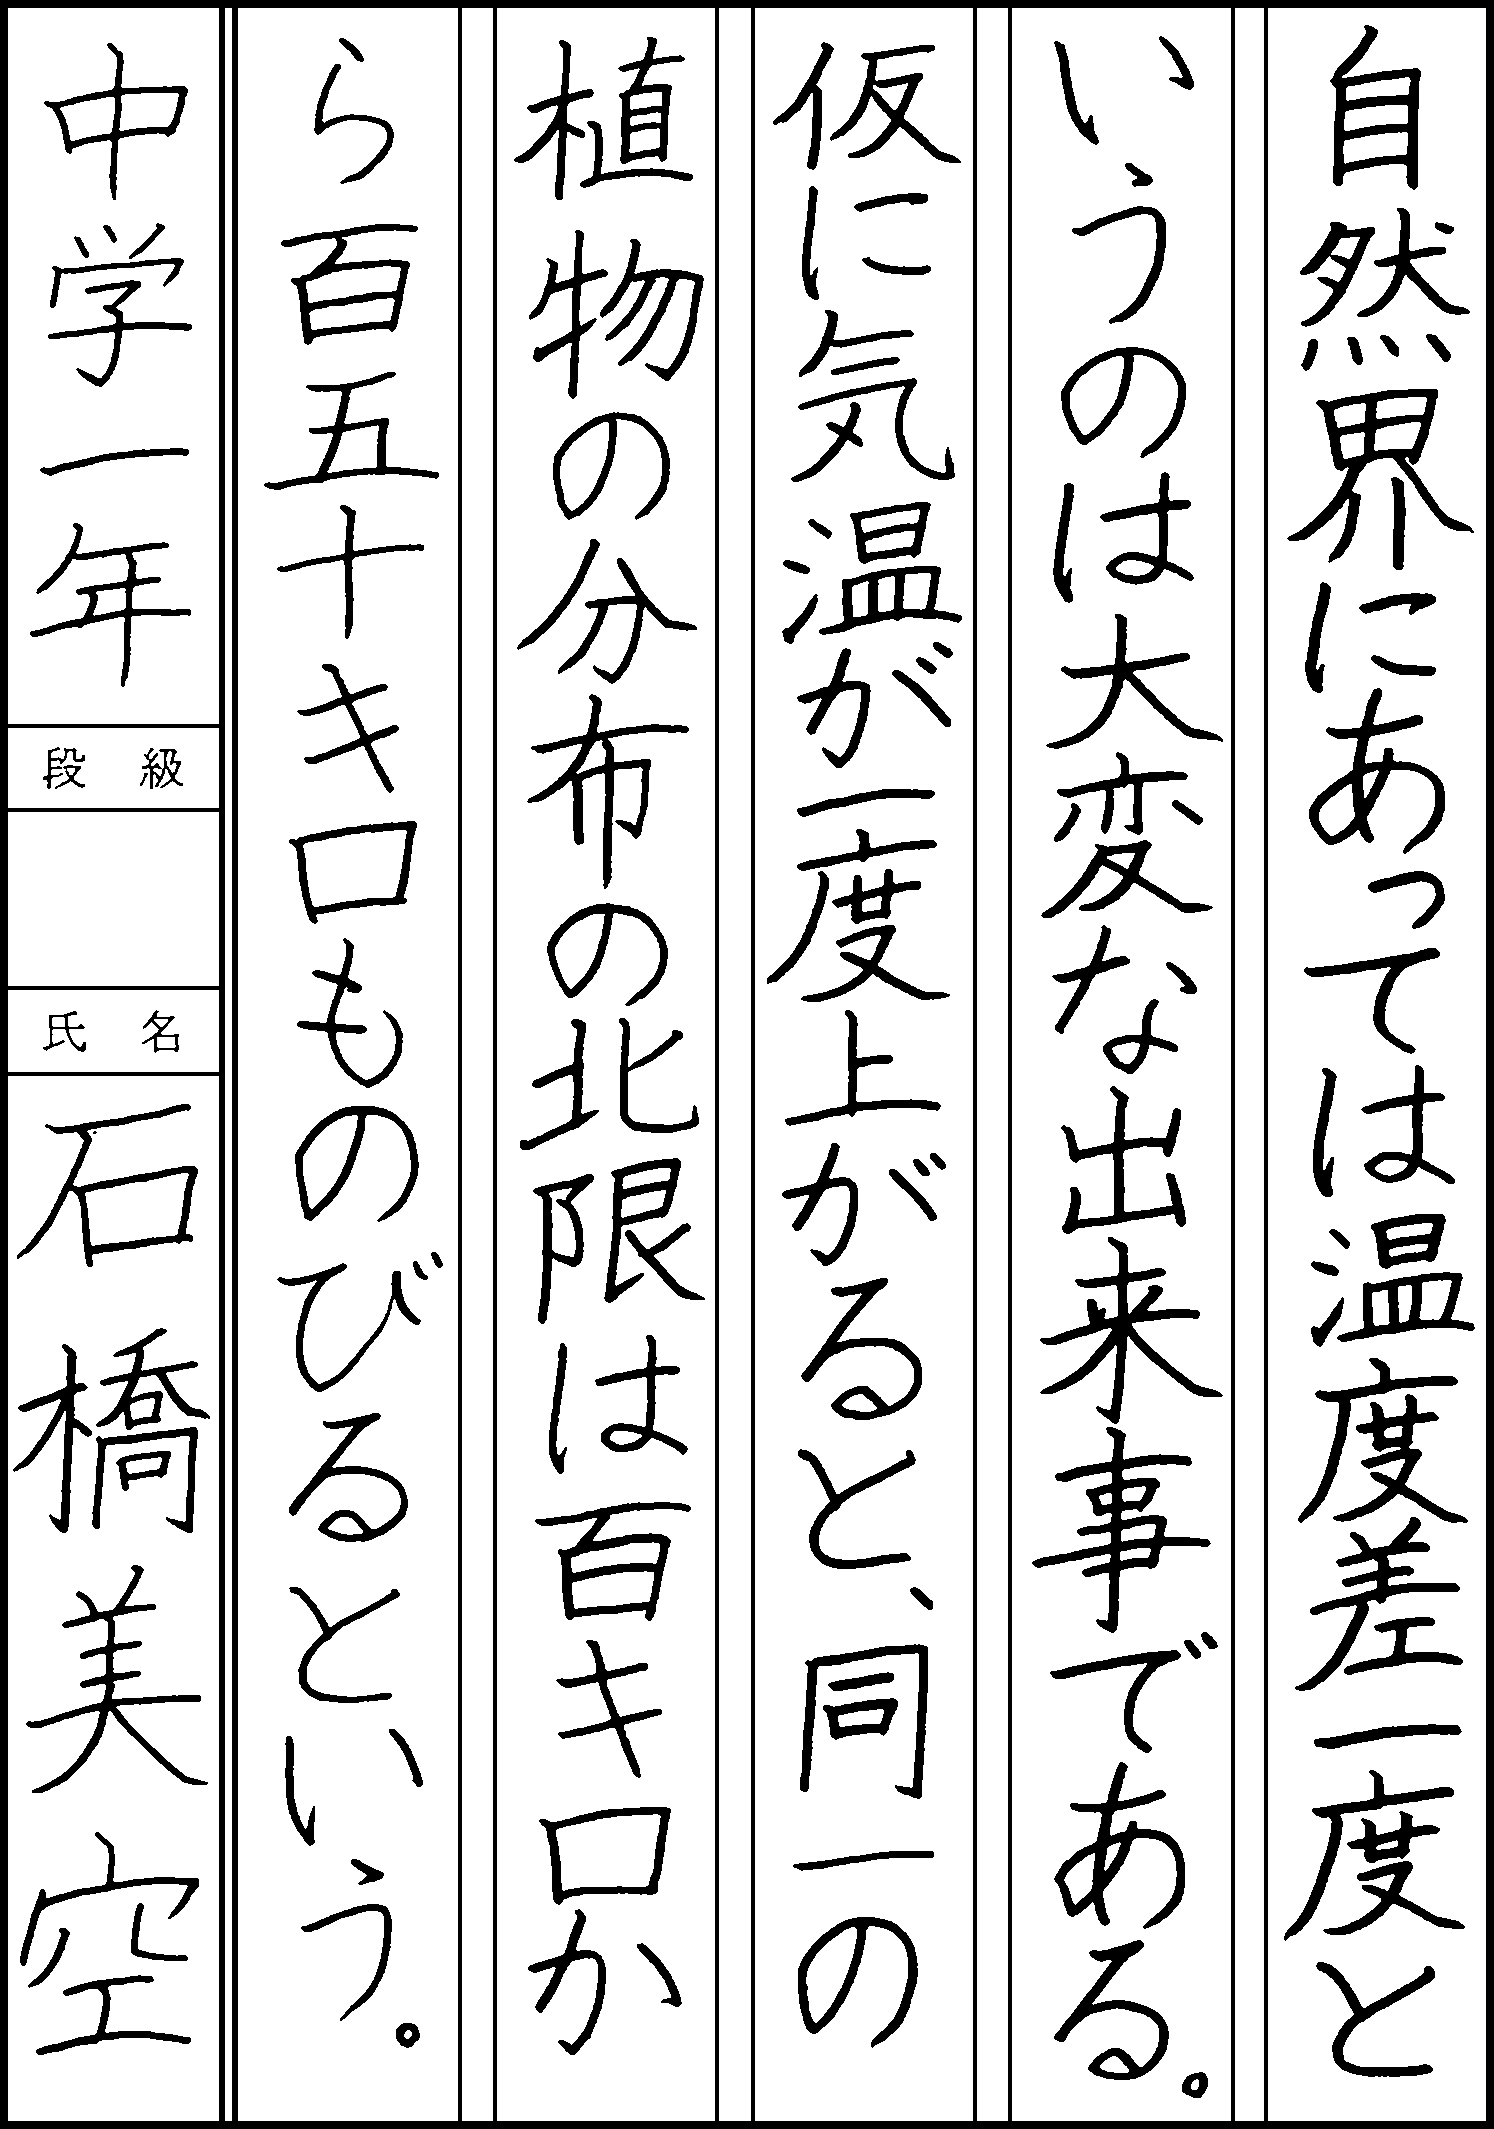 自然界にあっては温度差一度と
いうのは大変な出来事である。
仮に気温が一度上がると、同一の
植物の分布の北限は百キロか
ら百五十キロものびるという。
中学一年
段級
氏名
石橋美空